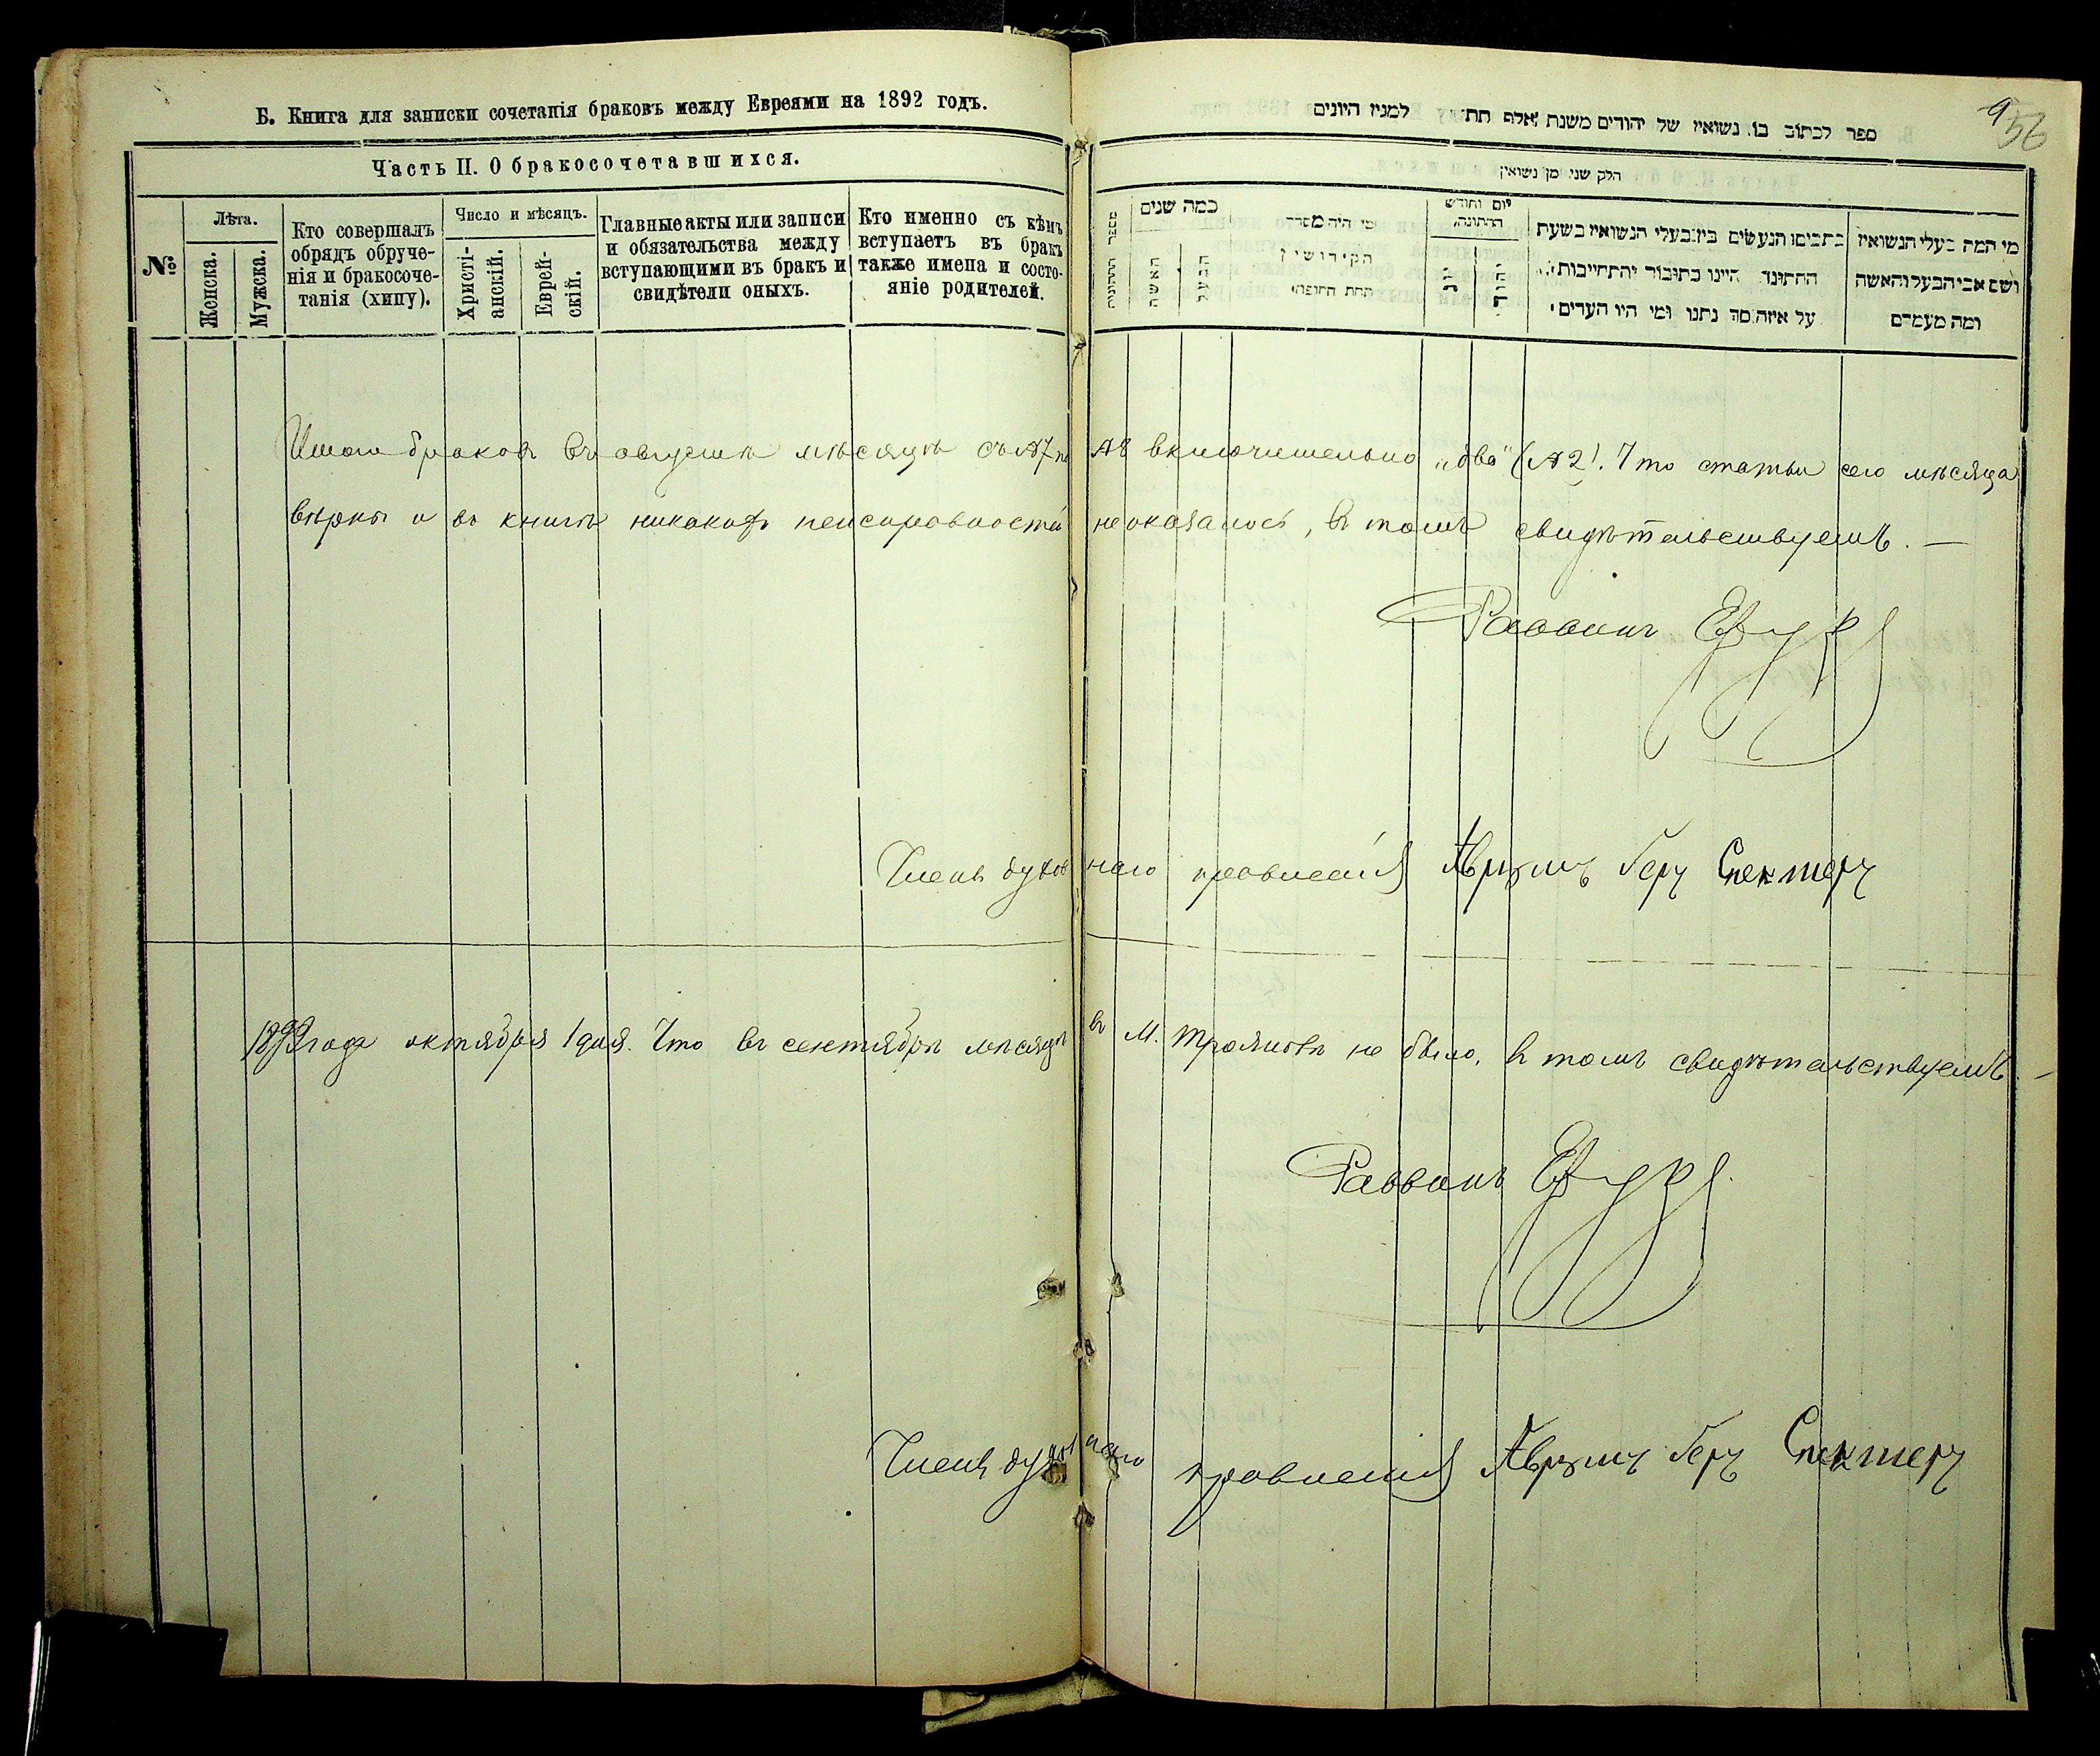 Б. Книга для записки сочетанія браковъ между Евреями на 1892 годъ.
Часть II. О бракосочетавшихся.
№
Лѣта.
Женска.
Мужска.
Кто совершалъ
обрядъ обруче-
нія и бракосоче-
танія (хипу).
Число и мѣсяцъ.
Христі-
анскій.
Еврей-
скій.
Главные акты или записи
и обязательства между
вступающими въ бракъ и
свидѣтели оныхъ.
Кто именно съ кѣмъ
вступаетъ въ бракъ
также имена и состо-
яніе родителей.
9
56
ספר לכתוב בו נשואין של יהודים משנת אלף תת למנין היונים
חלק שני מן נשואין
מספר החתונות
כמה שנים
האשה
הבעל
מי היה מסדר
הקידושין
תחת החופה
יום וחודש
החתונה
יהודי
מי המה בעלי הנשואין
ושם אבי הבעל והאשה
ומה מעמדם
כתבים הנעשים בין בעלי הנשואין בשעת
החתונה היינו כתובה והתחייבות
על איזה סך נתנו ומי היו העדים
Итого браковъ въ августѣ мѣсяцѣ съ №7 по №8 включительно „два" (№2). Что статьи сего мѣсяца
вѣрны и въ книгѣ никакихъ неисправностей не оказалось, въ томъ свидѣтельствуемъ. —
Раввинъ
Членъ духовнаго правленія Аврумъ Геръ Спекторъ
1892 года октября 1 дня. Что въ сентябрѣ мѣсяцѣ въ м. Трояновѣ не было, въ томъ свидѣтельствуемъ —
Раввинъ
Членъ духовнаго правленія Аврумъ Геръ Спекторъ